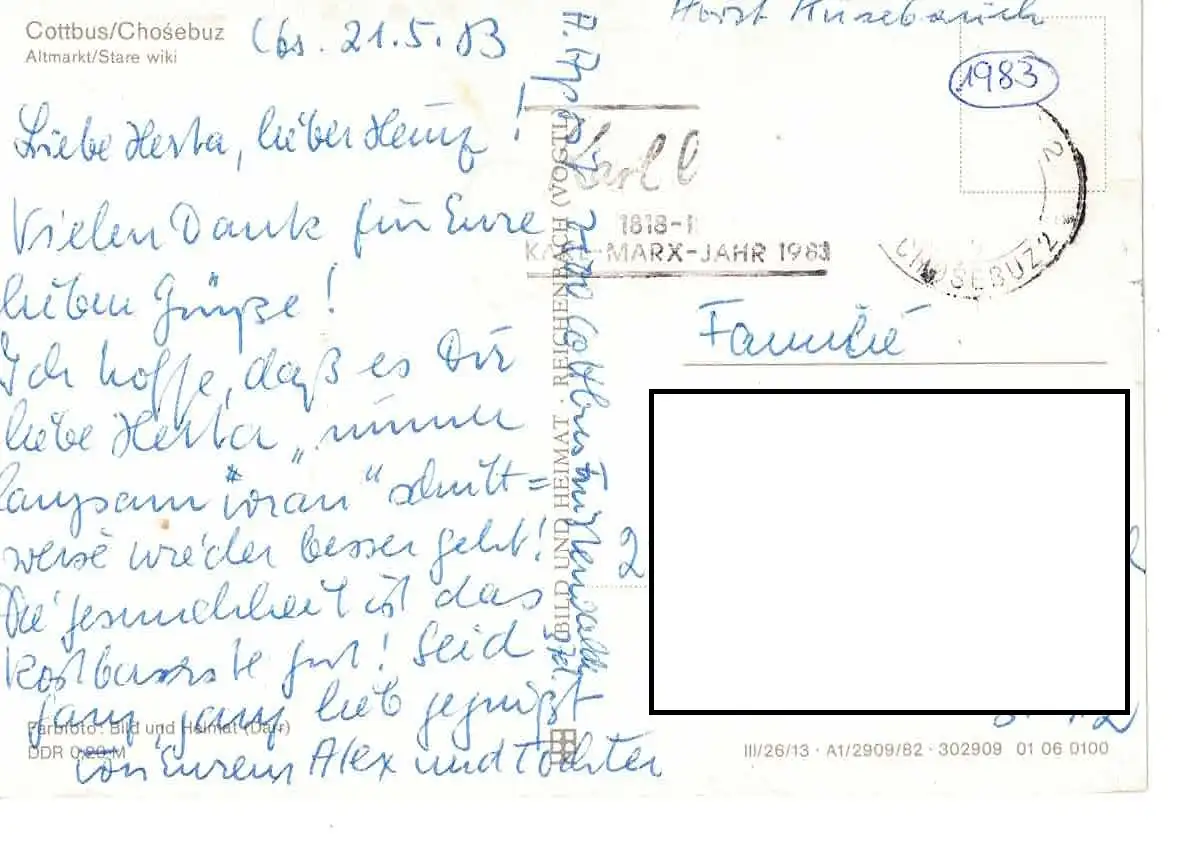 Cottbus/Chośebuz
Altmarkt/Stare wiki
Cbs. 21.5.83
Liebe Herta, lieber Heinz!
Vielen Dank für Eure
lieben Grüße!
Ich hoffe, daß es Dir
liebe Herta „immer
langsam voran“ schritt=
weise wieder besser geht!
Die Gesundheit ist das
kostbarste Gut! Seid
ganz, ganz lieb gegrüßt
von Eurem Alex und Tochter
Farbfoto: Bild und Heimat (Darr)
DDR 0,20 M
BILD UND HEIMAT · REICHENBACH (VOGTL
7500 Cottbus
Horst
1983
Karl
1818-1
KARL-MARX-JAHR 1983
CHOŚEBUZ 2
Familie
2
III/26/13 · A1/2909/82 · 302909 01 06 0100